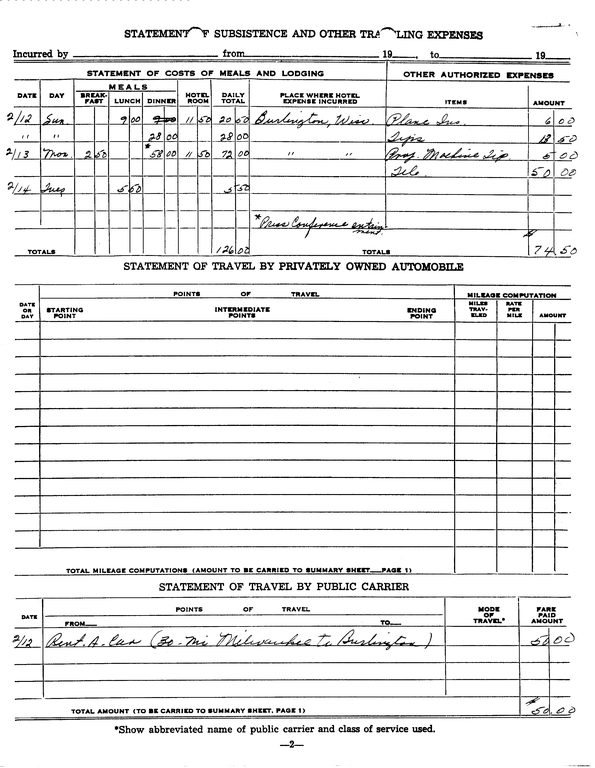 STATEMENT OF SUBSISTENCE AND OTHER TRA LING EXPENSES
Incurred by from 19 , to 19
STATEMENT OF COSTS OF MEALS AND LODGING OTHER AUTHORIZED EXPENSES
MEALS
DATE DAY BREAK-FAST LUNCH DINNER HOTEL ROOM DAILY TOTAL PLACE WHERE HOTEL EXPENSE INCURRED ITEMS AMOUNT
2/12 Sun. 9 00 11 50 20 50 Burlington, Wisc. Plane Ins. 6 00
" " 28 00 28 00 Tips 13 50
2/13 Mon. 2 50 *58 00 11 50 72 00 " " Proj. Machine Tip 5 00
Tel. 50 00
2/14 Tues 5 50 5 50
*Press Conference entertainment.
TOTALS 126 00 TOTALS $ 74 50
STATEMENT OF TRAVEL BY PRIVATELY OWNED AUTOMOBILE
POINTS OF TRAVEL MILEAGE COMPUTATION
DATE OR DAY STARTING POINT INTERMEDIATE POINTS ENDING POINT MILES TRAV-ELED RATE PER MILE AMOUNT
TOTAL MILEAGE COMPUTATIONS (AMOUNT TO BE CARRIED TO SUMMARY SHEET—PAGE 1)
STATEMENT OF TRAVEL BY PUBLIC CARRIER
DATE POINTS OF TRAVEL MODE OF TRAVEL* FARE PAID AMOUNT
FROM— TO—
2/12 Rent. A. Car (30-mi Milwaukee to Burlington) 50 00
TOTAL AMOUNT (TO BE CARRIED TO SUMMARY SHEET, PAGE 1) $ 50.00
*Show abbreviated name of public carrier and class of service used.
—2—